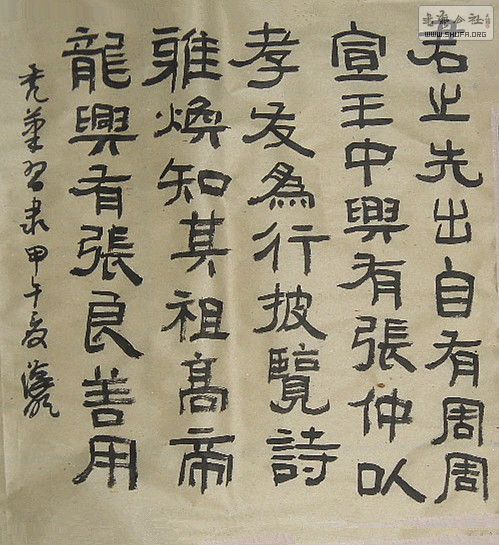 君之先出自有周周
宣王中興有張仲以
孝友為行披覽詩
雅煥知其祖高帝
龍興有張良善用
禿筆習隸甲午夏
WWW.SHUFA.ORG